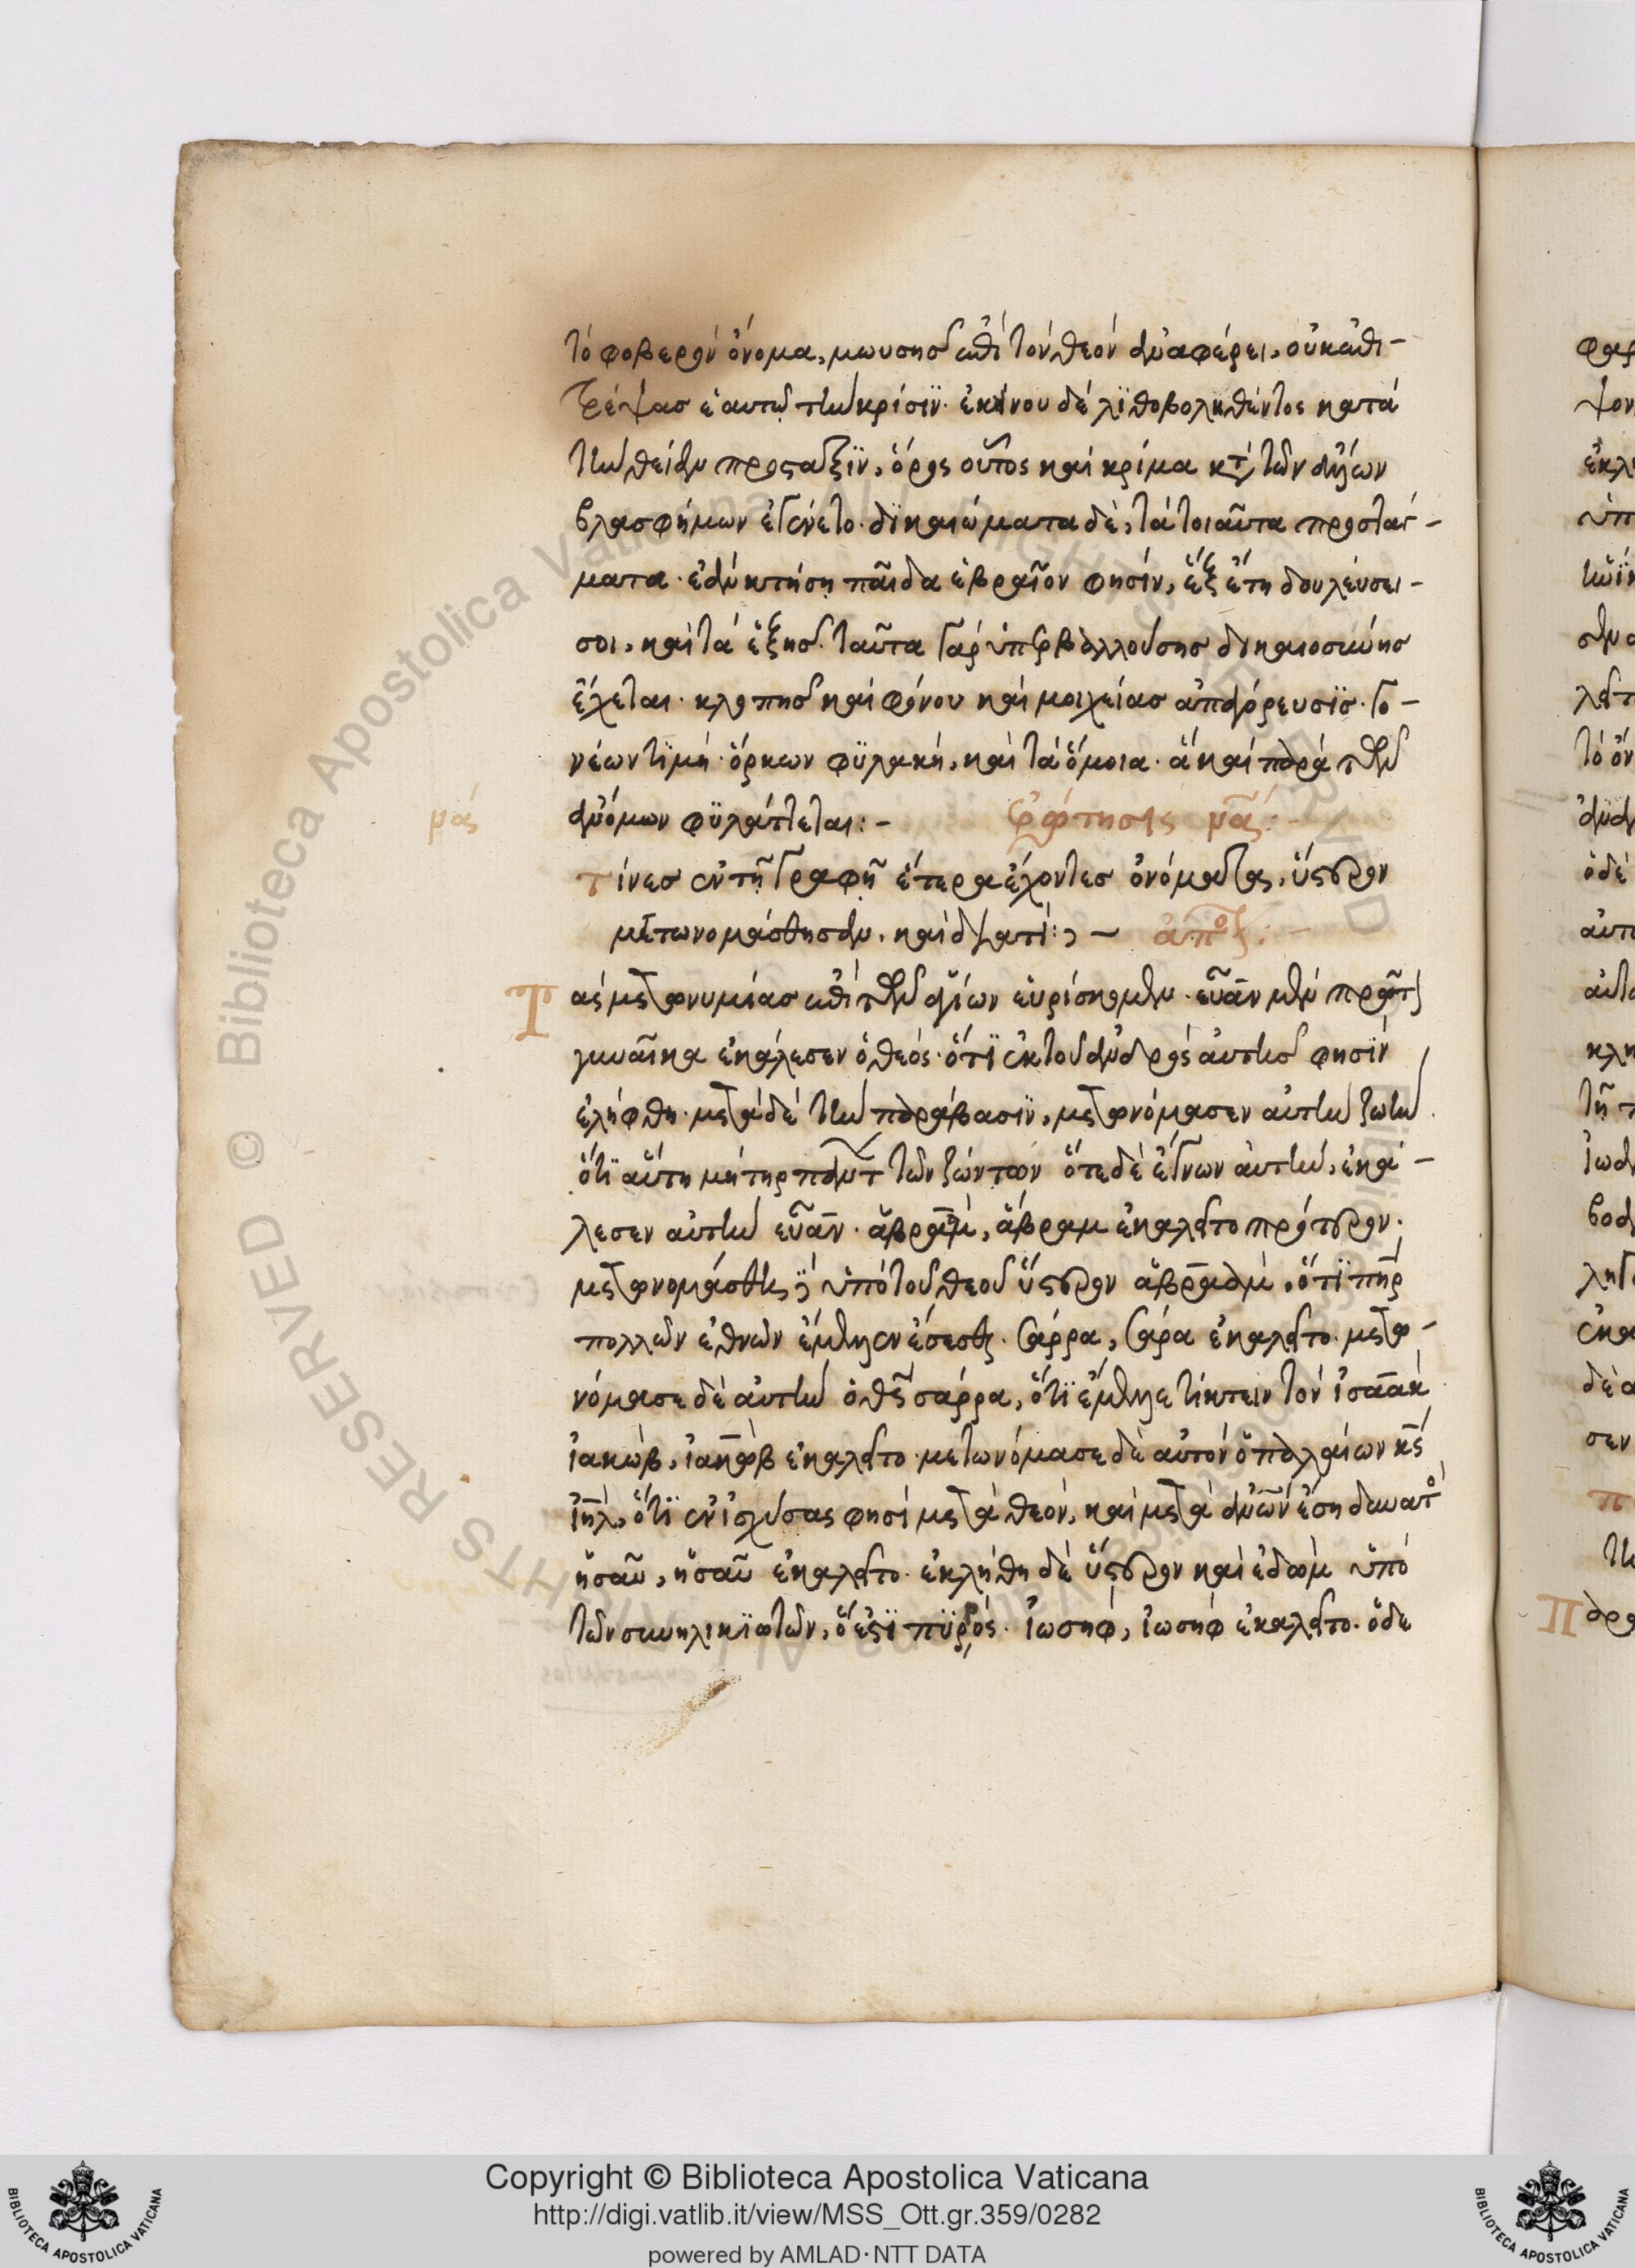 τὸ φοβερὸν ὄνομα, μωυσῆς ἐπὶ τὸν θεὸν ἀναφέρει, οὐκ ἐπι-
τρέψας ἑαυτῷ τὴν κρίσϊν· ἐκείνου δὲ λϊθοβοληθέντος κατὰ
τὴν θείαν προσταξϊν, ὅρος οὗτος καὶ κρίμα κτ̀ τῶν ἁγίων
βλασφήμων ἐγένετο· δϊκαιώματα δὲ, τὰ τοιαῦτα προστάγ-
ματα· ἐὰν κτήσῃ παῖδα ἑβραῖον φησίν, ἓξ ἔτη δουλεύσει-
σοι, καὶ τὰ ἑξῆς· ταῦτα γὰρ ὑπερβαλλούσης δικαιοσύνης
ἔχεται· κλοπῆς καὶ φόνου καὶ μοιχείας ἀπαγόρευσϊς· γο-
νέων τϊμή· ὅρκων φϋλακή, καὶ τὰ ὅμοια· ἃ καὶ παρὰ τῶν
ἀνόμων φϋλάττεται:-
ἐρώτησις μα´:-
μα´
τίνες ἐν τῇ γραφῇ ἕτερα ἔχοντες ὀνόματα, ὕστερον
μετωνομάσθησαν, καὶ διατί:; – ἀπόκ:-
Τ
ὰς μετωνυμίας ἐπὶ τῶν ἁγίων εὑρίσκομεν· εὔαν μὲν πρῶτ
γυναῖκα ἐκάλεσεν ὁ θεός· ὅτϊ ἐκ τοῦ ἀνδρὸς αὐτῆς φησϊν
ἐλήφθη· μετὰ δὲ τὴν παράβασϊν, μετωνόμασεν αὐτὴν ζωὴν
ὅτϊ αὕτη μήτηρ παντ τῶν ζώντων ὅτε δὲ ἔγνων αὐτὴν, ἐκά-
λεσεν αὐτὴν εὔαν· ἄβραμ, ἄβραμ ἐκαλεῖτο πρότερον·
μετωνομάσθη ὑπὸ τοῦ θεοῦ ὕστερον ἀβραὰμ, ὅτϊ πηρ
πολλῶν ἐθνῶν ἔμελλεν ἔσεσθαι· σάρρα, σάρα ἐκαλεῖτο· μετω-
νόμασε δὲ αὐτὴν ὁ θς σάρρα, ὅτϊ ἔμελλε τίκτειν τὸν ἰσαὰκ
ἰακώβ, ἰακὼβ ἐκαλεῖτο· μετωνόμασε δὲ αὐτὸν ὁ παλαίων κς
ἰηλ, ὅτϊ ἐνίσχυσας φησὶ μετὰ θεοῦ, καὶ μετὰ ἀνων ἔσῃ δυνατὸ
ἡσαῦ, ἡσαῦ ἐκαλεῖτο· ἐκλήθη δὲ ὕστερον καὶ ἐδὼμ ὑπὸ
τῶν συνηλικϊωτῶν, ὅ ἐςϊ πϋρρός· ἰωσήφ, ἰωσὴφ ἐκαλεῖτο· ὅδε
Copyright © Biblioteca Apostolica Vaticana
http://digi.vatlib.it/view/MSS_Ott.gr.359/0282
powered by AMLAD·NTT DATA